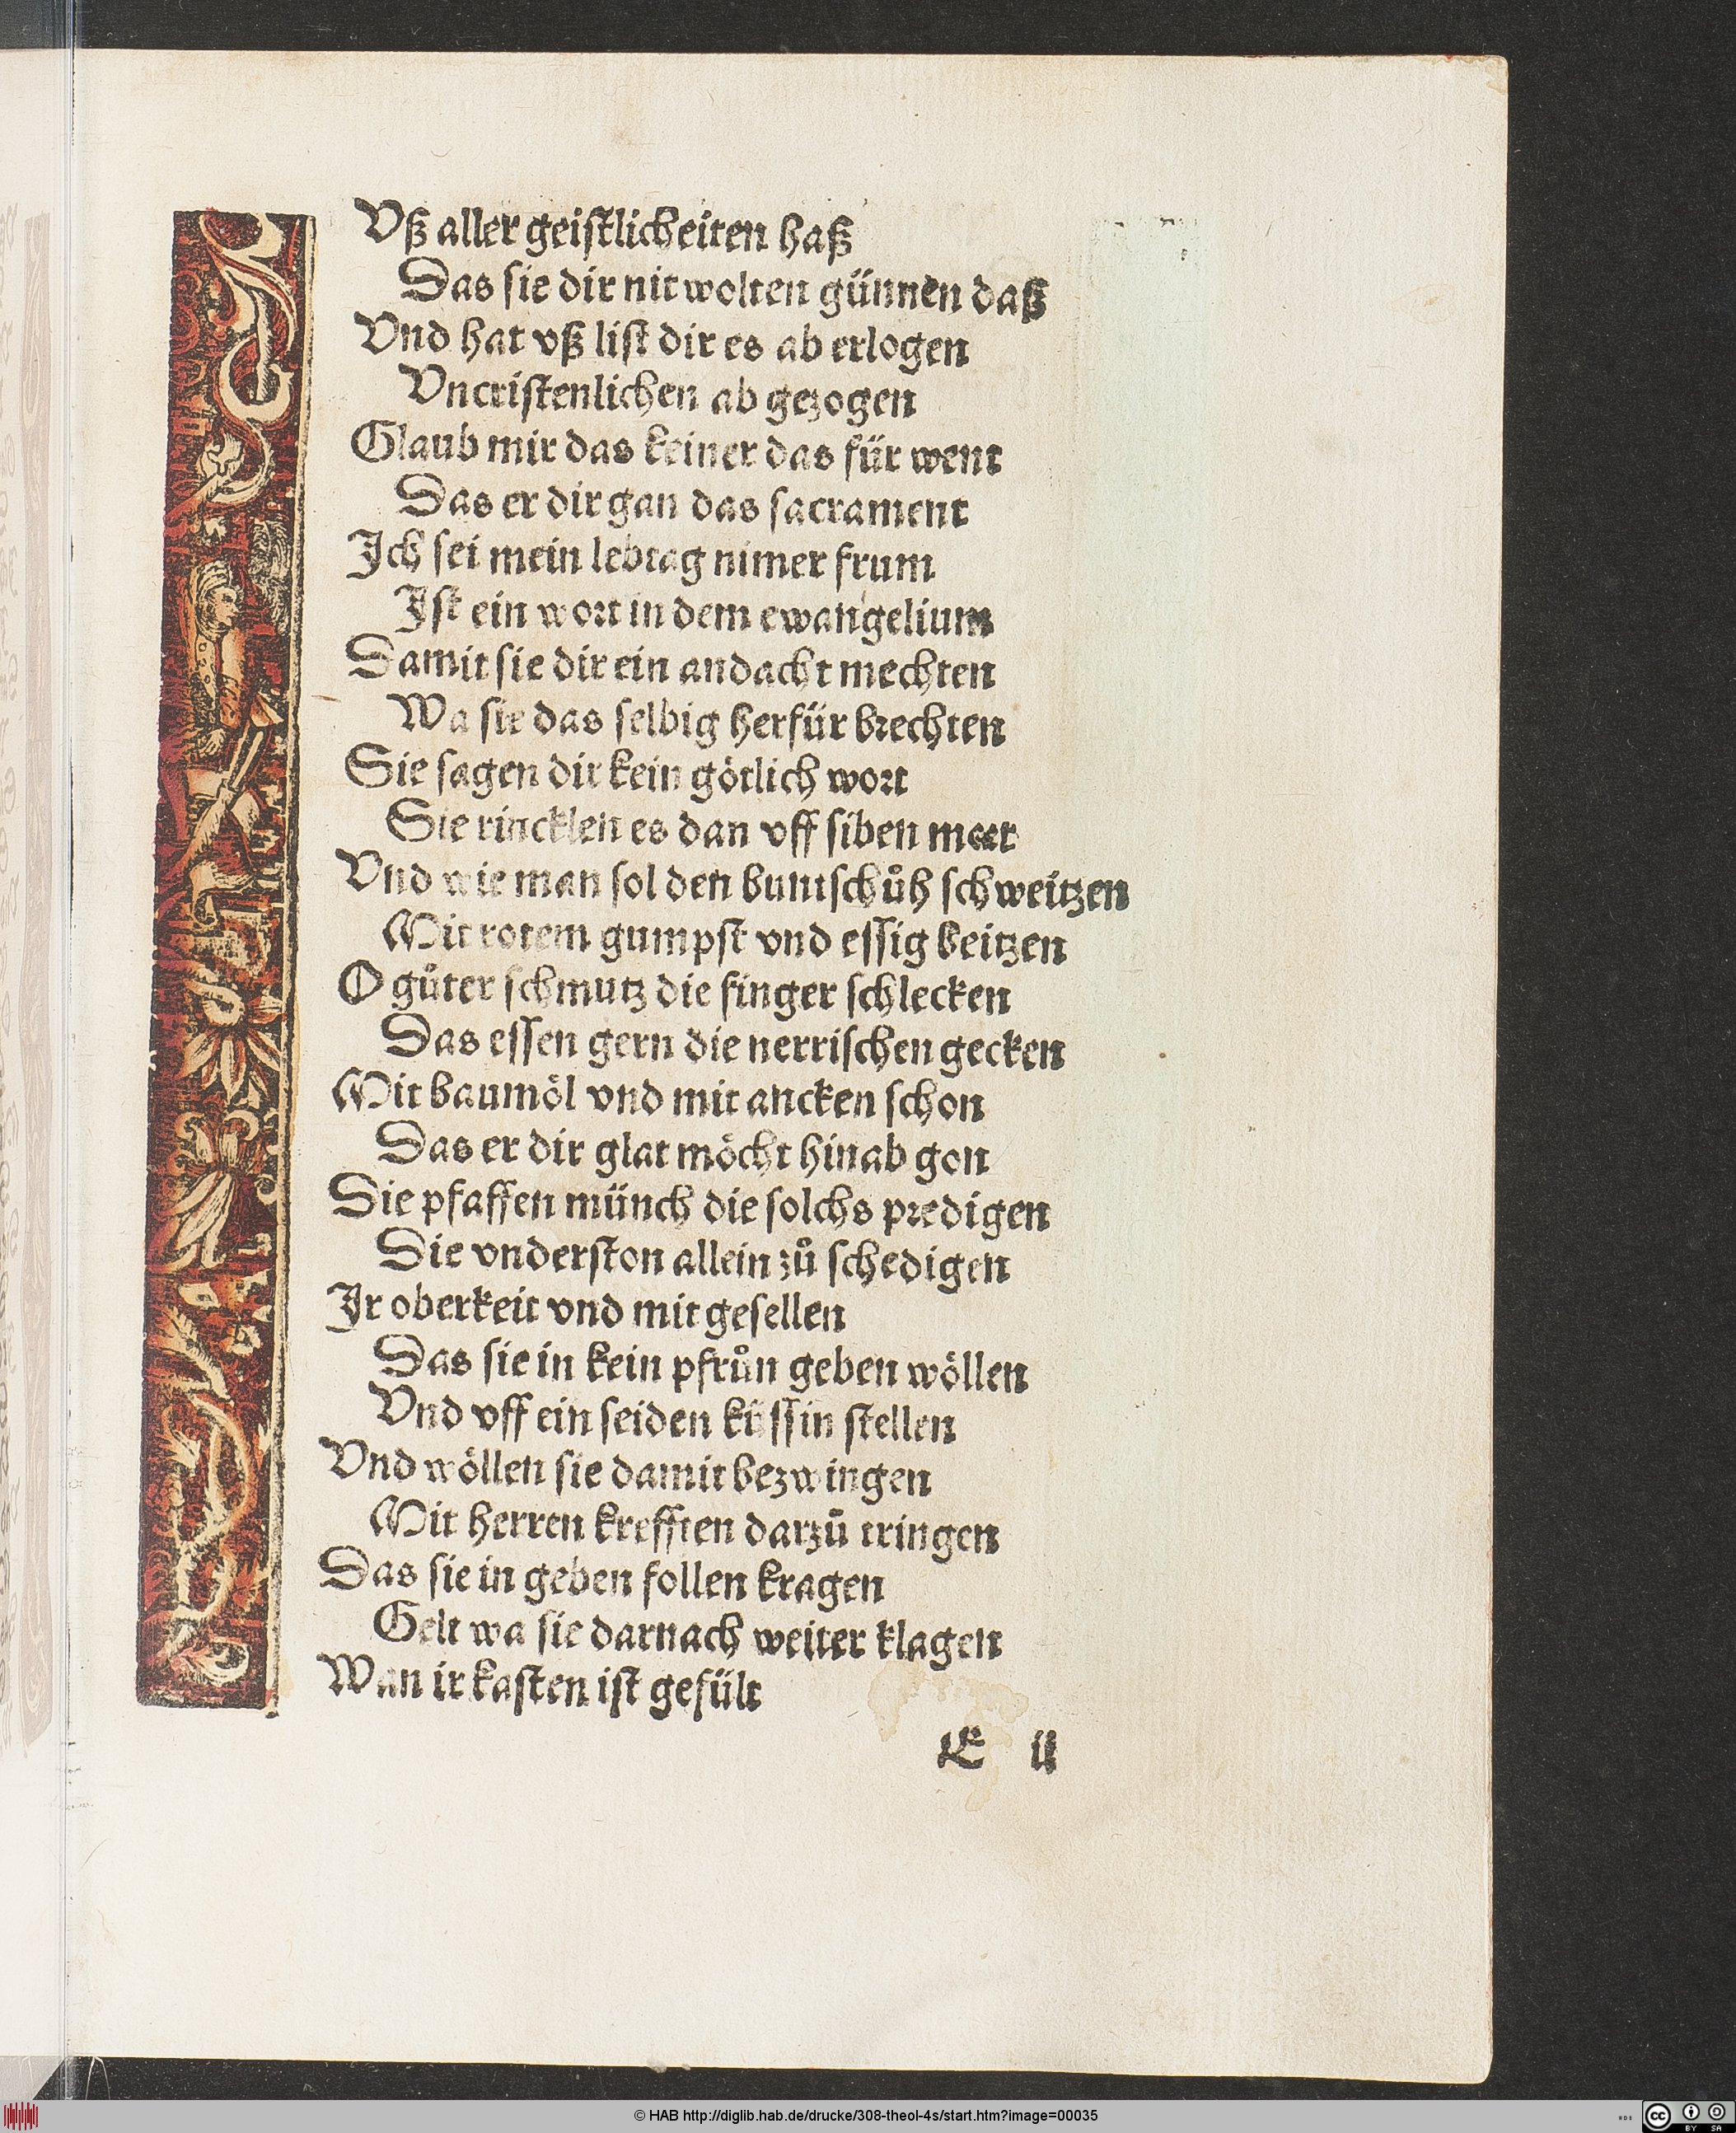 Vß aller geistlicheiten haß
Das sie dir nit wolten günnen daß
Vnd hat vß list dir es ab erlogen
Vncristenlichen ab gezogen
Glaub mir das keiner das für went
Das er dir gan das sacrament
Ich sei mein lebtag nimer frum
Ist ein wort in dem ewangelium
Damit sie dir ein andacht mechten
Wa sie das selbig herfür brechten
Sie sagen dir kein götlich wort
Sie rincklen es dan vff siben
Vnd wie man sol den buntschůh schweitzen
Mit rotem gumpst vnd essig beitzen
O gůter schmutz die finger schlecken
Das essen gern die nerrischen gecken
Mit baumöl vnd mit ancken schon
Das er dir glat möcht hinab gon
Die pfaffen münch die solchs predigen
Die vnderston allein zů schedigen
Ir oberkeit vnd mit gesellen
Das sie in kein pfrůn geben wöllen
Vnd vff ein seiden küssin stellen
Vnd wöllen sie damit bezwingen
Mit herren krefften darzů tringen
Das sie in geben follen kragen
Gelt wa sie darnach weiter klagen
Wan ir kasten ist gefült
E ij
© HAB http://diglib.hab.de/drucke/308-theol-4s/start.htm?image=00035
cc BY SA